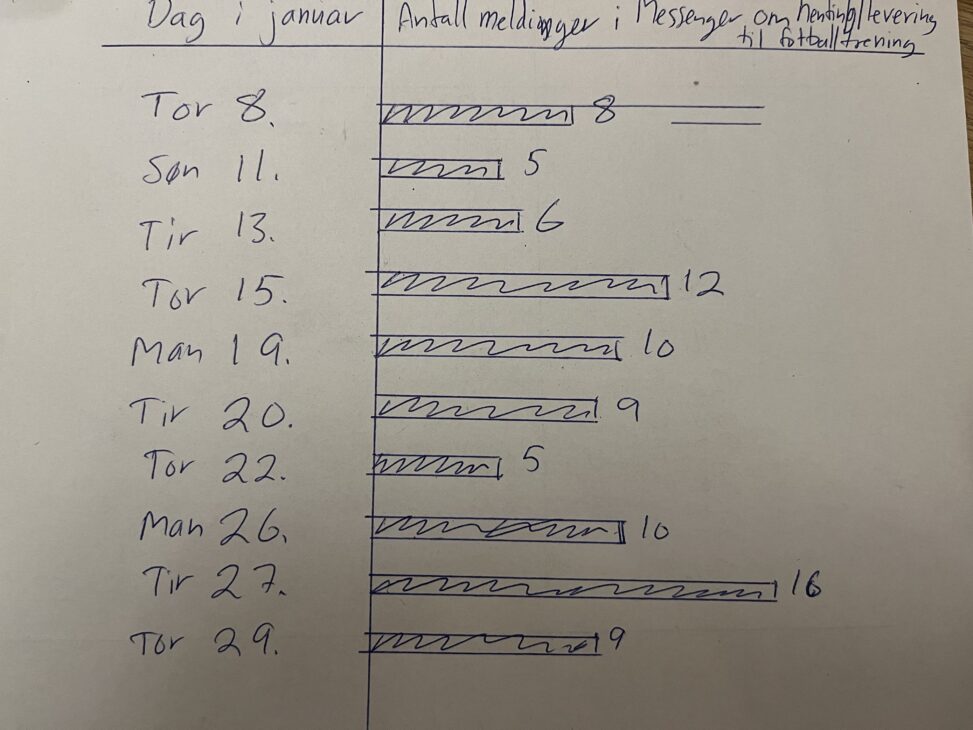 Dag i januar
Antall meldinger i Messenger om henting/levering
til fotballtrening
Tor 8. 8
Søn 11. 5
Tir 13. 6
Tor 15. 12
Man 19. 10
Tir 20. 9
Tor 22. 5
Man 26. 10
Tir 27. 16
Tor 29. 9